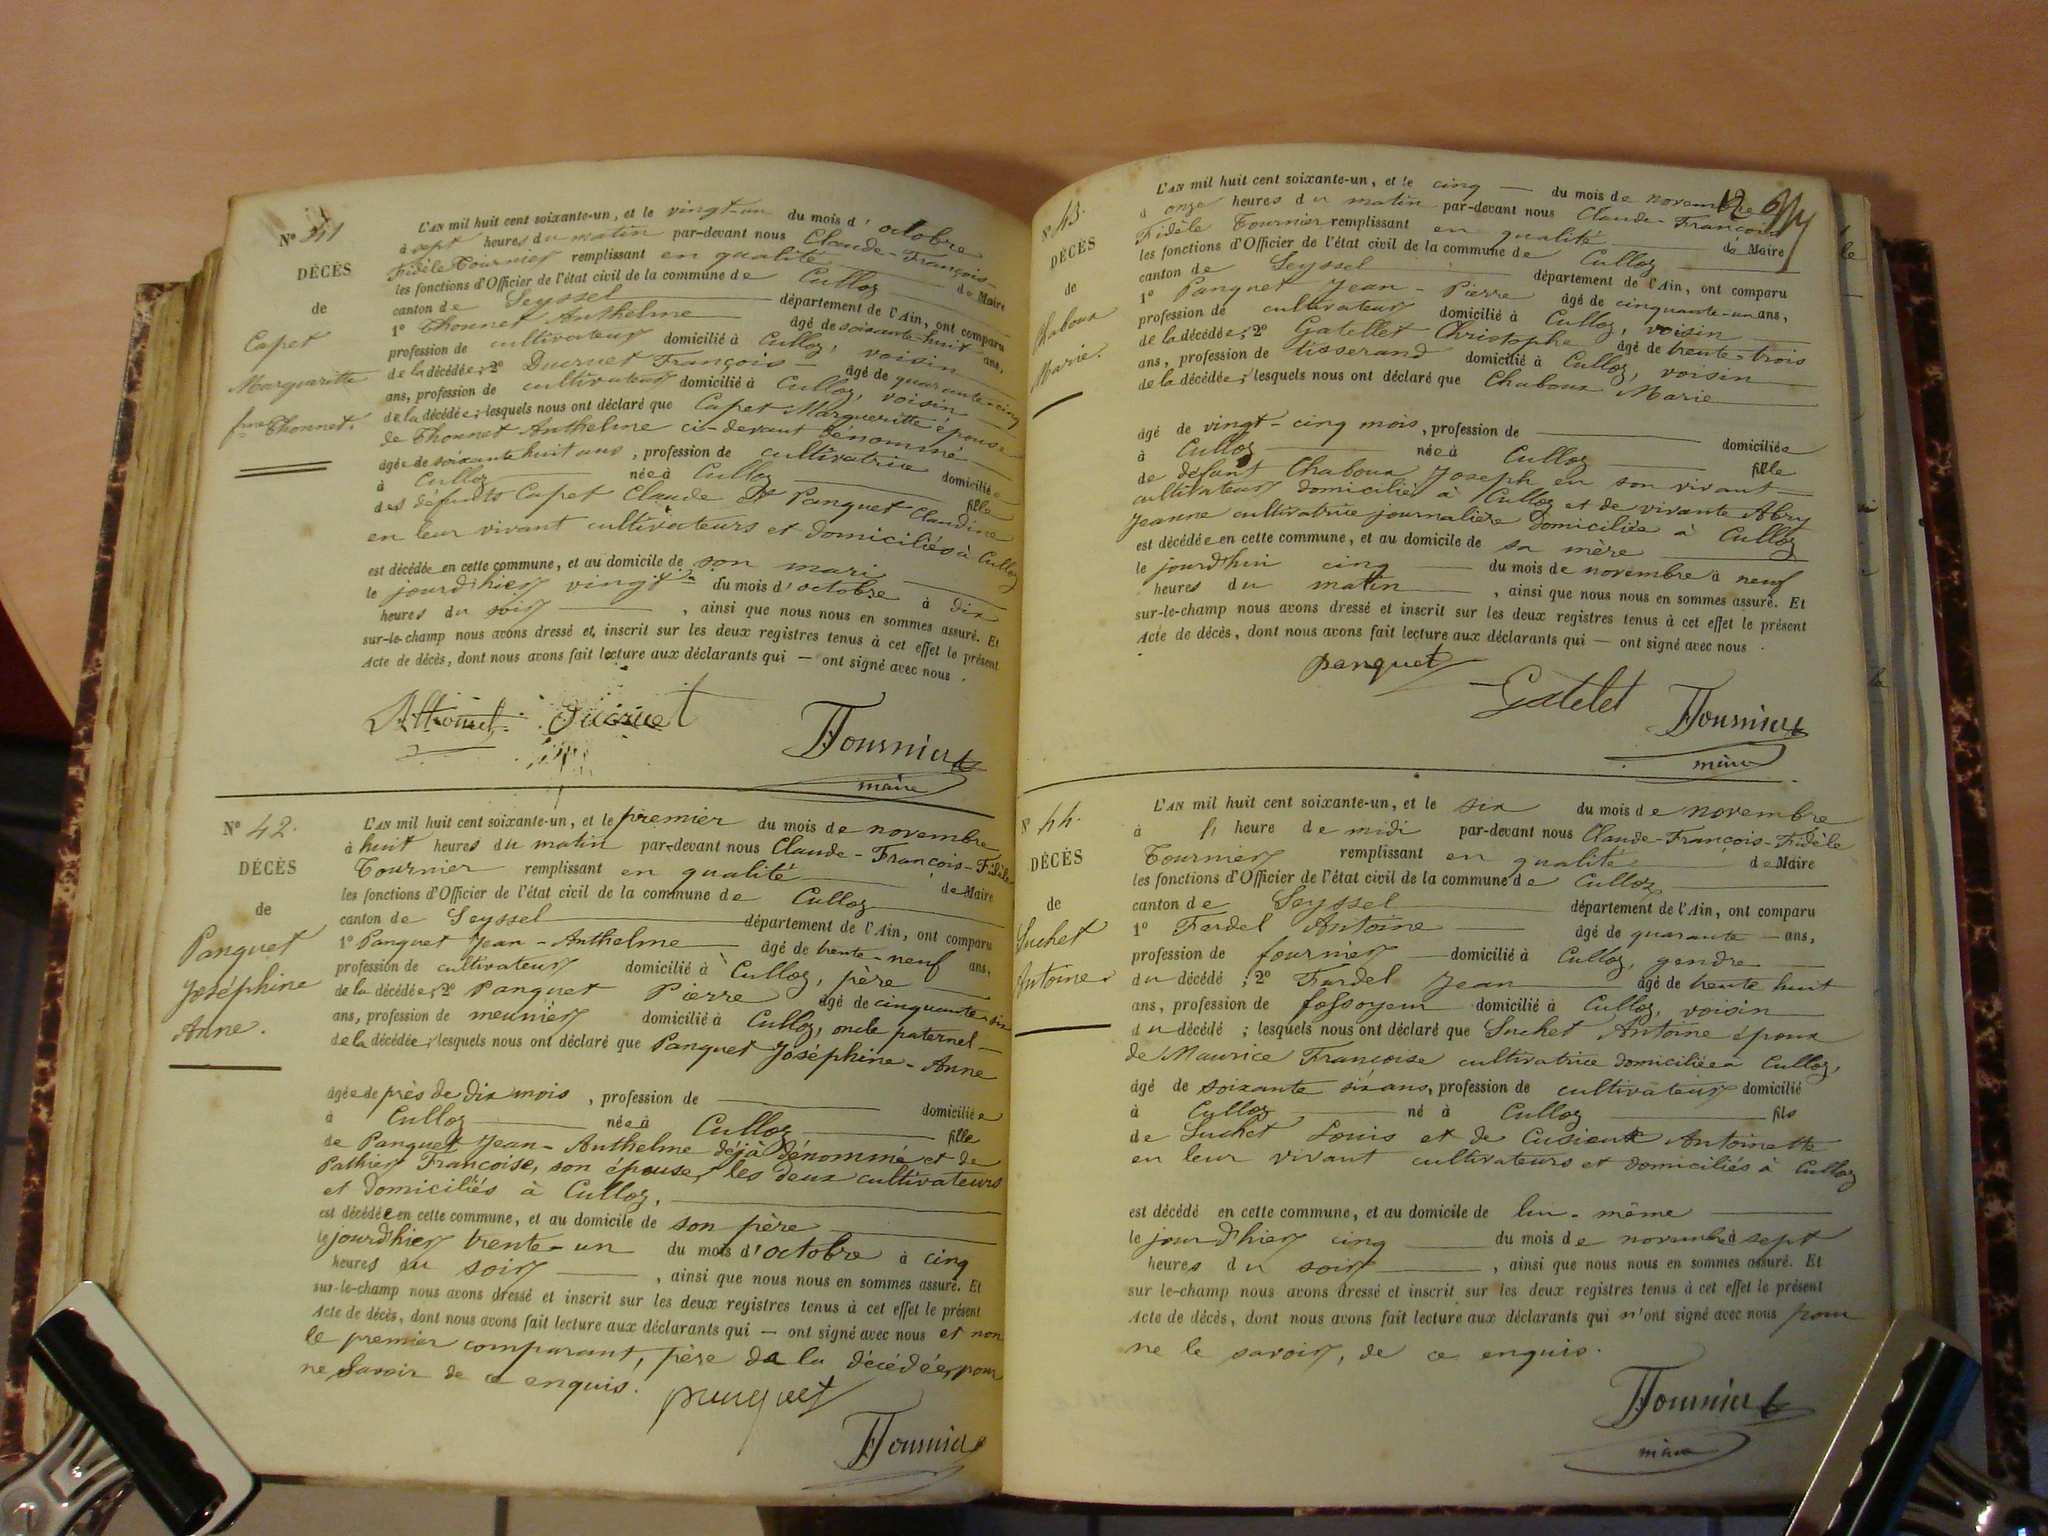 Nº 41
DÉCÈS
de
Capet
Margueritte
fme Thonnet.
L'AN mil huit cent soixante-un, et le vingt-un du mois d'octobre
à sept heures du matin par-devant nous Claude-François-
Fidèle Tournier remplissant en qualité de Maire
les fonctions d'Officier de l'état civil de la commune de Culloz
canton de Seyssel département de l'Ain, ont comparu
1º Thonnet Anthelme âgé de soixante-huit ans,
profession de cultivateur domicilié à Culloz, voisin
de la décédée; 2º Ducruet François âgé de quarante-cinq
ans, profession de cultivateur domicilié à Culloz, voisin
de la décédée; lesquels nous ont déclaré que Capet Margueritte épouse
de Thonnet Anthelme ci-devant dénommé
âgée de soixante huit ans, profession de cultivatrice domiciliée
à Culloz née à Culloz fille
des défunts Capet Claude et Panquet Claudine
en leur vivant cultivateurs et domiciliés à Culloz
est décédée en cette commune, et au domicile de son mari
le jourd'hier vingt du mois d'octobre à dix
heures du soir, ainsi que nous nous en sommes assuré. Et
sur-le-champ nous avons dressé et inscrit sur les deux registres tenus à cet effet le présent
Acte de décès, dont nous avons fait lecture aux déclarants qui — ont signé avec nous.
Ducruet
Tournier
maire
Nº 42.
DÉCÈS
de
Panquet
Joséphine
Anne.
L'AN mil huit cent soixante-un, et le premier du mois de novembre
à huit heures du matin par-devant nous Claude-François-Fidèle
Tournier remplissant en qualité de Maire
les fonctions d'Officier de l'état civil de la commune de Culloz
canton de Seyssel département de l'Ain, ont comparu
1º Panquet Jean-Anthelme âgé de trente-neuf ans,
profession de cultivateur domicilié à Culloz, père
de la décédée; 2º Panquet Pierre âgé de cinquante-six
ans, profession de meunier domicilié à Culloz, oncle paternel
de la décédée; lesquels nous ont déclaré que Panquet Joséphine-Anne
âgée de près de dix mois, profession de domiciliée
à Culloz née à Culloz fille
de Panquet Jean-Anthelme déjà dénommé et de
Pathier Françoise, son épouse, les deux cultivateurs
et domiciliés à Culloz.
est décédée en cette commune, et au domicile de son père
le jourd'hier trente-un du mois d'octobre à cinq
heures du soir, ainsi que nous nous en sommes assuré. Et
sur-le-champ nous avons dressé et inscrit sur les deux registres tenus à cet effet le présent
Acte de décès, dont nous avons fait lecture aux déclarants qui — ont signé avec nous et non
le premier comparant, père de la décédée, pour
ne savoir de ce enquis.
panquet
Tournier
Nº 43.
DÉCÈS
de
Chaboux
Marie.
L'AN mil huit cent soixante-un, et le cinq du mois de novembre
à onze heures du matin par-devant nous Claude-François
Fidèle Tournier remplissant en qualité de Maire
les fonctions d'Officier de l'état civil de la commune de Culloz
canton de Seyssel département de l'Ain, ont comparu
1º Panquet Jean-Pierre âgé de cinquante-un ans,
profession de cultivateur domicilié à Culloz, voisin
de la décédée; 2º Gatellet Christophe âgé de trente-trois
ans, profession de tisserand domicilié à Culloz, voisin
de la décédée; lesquels nous ont déclaré que Chaboux Marie
âgé de vingt-cinq mois, profession de domiciliée
à Culloz née à Culloz fille
de défunt Chaboux Joseph en son vivant
cultivateur domicilié à Culloz et de vivante Abry
Jeanne cultivatrice journalière domiciliée à Culloz
est décédée en cette commune, et au domicile de sa mère
le jourd'hui cinq du mois de novembre à neuf
heures du matin, ainsi que nous nous en sommes assuré. Et
sur-le-champ nous avons dressé et inscrit sur les deux registres tenus à cet effet le présent
Acte de décès, dont nous avons fait lecture aux déclarants qui — ont signé avec nous.
panquet
Gatelet
Tournier
maire
Nº 44.
DÉCÈS
de
Suchet
Antoine.
L'AN mil huit cent soixante-un, et le six du mois de novembre
à heure de midi par-devant nous Claude-François-Fidèle
Tournier remplissant en qualité de Maire
les fonctions d'Officier de l'état civil de la commune de Culloz
canton de Seyssel département de l'Ain, ont comparu
1º Fardel Antoine âgé de quarante ans,
profession de fournier domicilié à Culloz, gendre
du décédé; 2º Fardel Jean âgé de trente huit
ans, profession de fossoyeur domicilié à Culloz, voisin
du décédé; lesquels nous ont déclaré que Suchet Antoine époux
de Maurice Françoise cultivatrice domiciliée à Culloz,
âgé de soixante six ans, profession de cultivateur domicilié
à Culloz né à Culloz fils
de Suchet Louis et de Cusieux Antoinette
en leur vivant cultivateurs et domiciliés à Culloz
est décédé en cette commune, et au domicile de lui-même
le jourd'hier cinq du mois de novembre à sept
heures du soir, ainsi que nous nous en sommes assuré. Et
sur le-champ nous avons dressé et inscrit sur les deux registres tenus à cet effet le présent
Acte de décès, dont nous avons fait lecture aux déclarants qui n'ont signé avec nous pour
ne le savoir, de ce enquis.
Tournier
maire